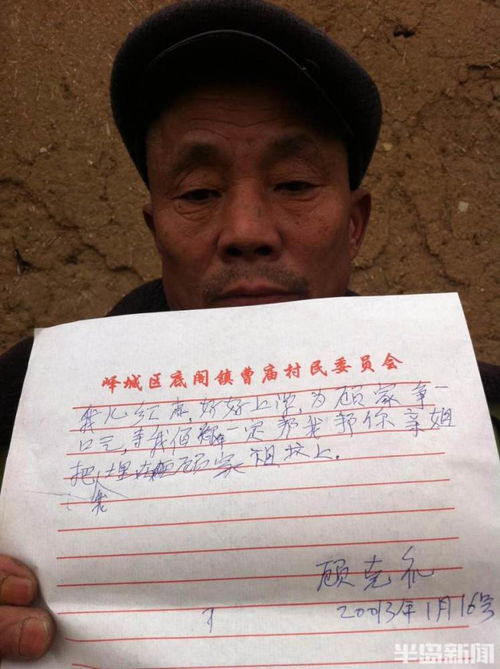 峄城区底阁镇曹庙村民委员会
我儿红 好好上课,为顾家争一
口气,等我 一定帮我 你亲姐
把 埋在顾家祖坟上.
我
顾克礼
2003年1月16号
半岛新闻